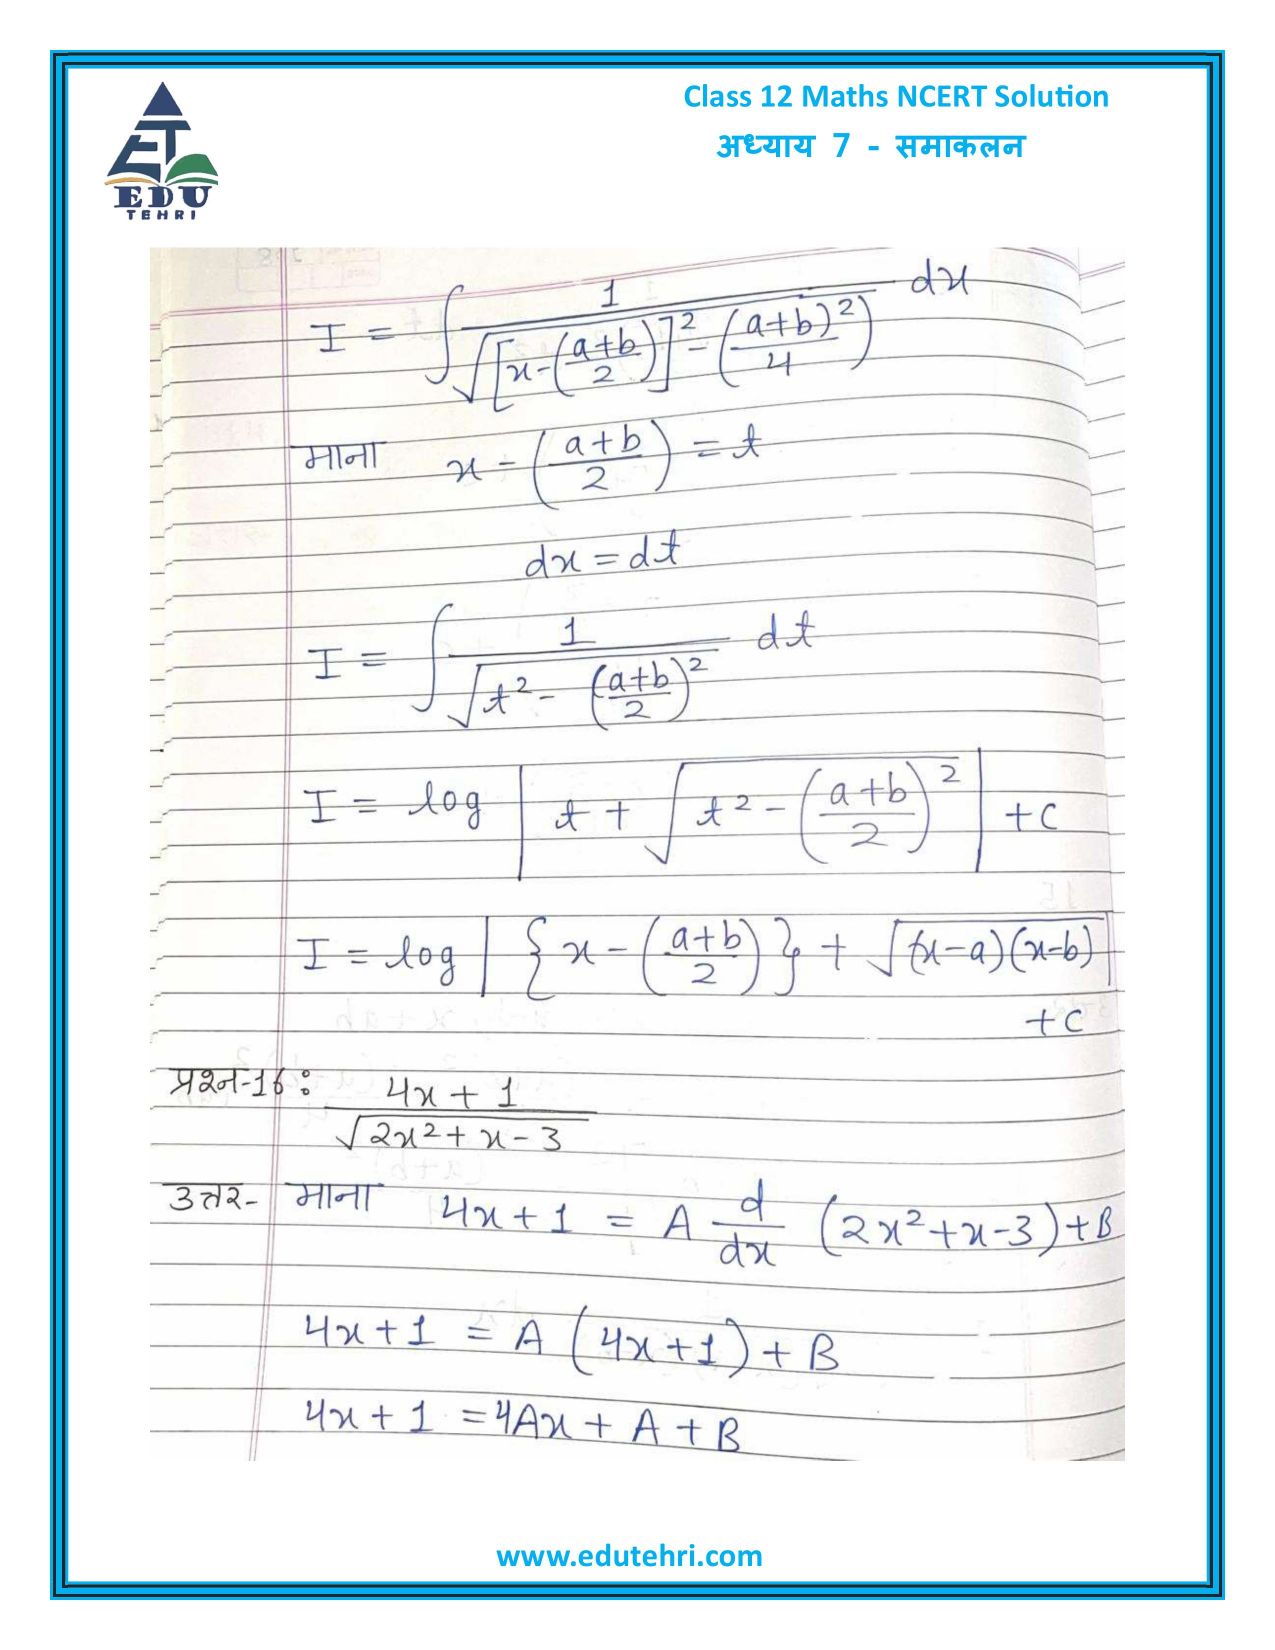 Class 12 Maths NCERT Solution
अध्याय 7 - समाकलन
EDU
TEHRI
I = ∫ 1/√([x-((a+b)/2)]² - ((a+b)²/4)) dx
माना x - ((a+b)/2) = t
dx = dt
I = ∫ 1/√(t² - ((a+b)/2)²) dt
I = log | t + √(t² - ((a+b)/2)²) | + c
I = log | {x - ((a+b)/2)} + √((x-a)(x-b)) |
+ c
प्रश्न-16: (4x + 1)/√(2x² + x - 3)
उत्तर- माना 4x + 1 = A d/dx (2x² + x - 3) + B
4x + 1 = A (4x + 1) + B
4x + 1 = 4Ax + A + B
www.edutehri.com